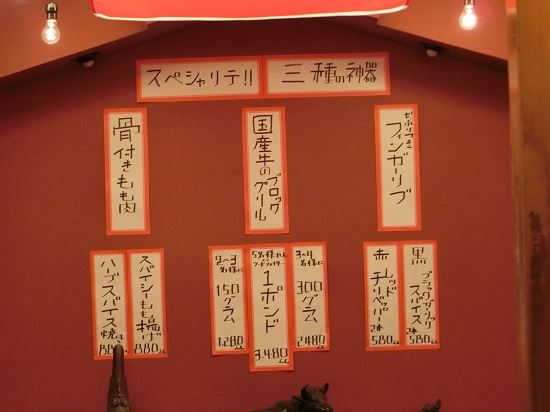 スペシャリテ!!
三種の神器
かぶりつき
フィンガーリブ
国産牛の
ブロック
グリル
骨付きもも肉
黒
ブラックガーリック
スパイス
2本
580
赤
レッド
チリペッパー
2本
580
3〜4
名様に
300グラム
2480
5名様
1ポンド
3.480
2〜3
名様に
150グラム
1.280
スパイシーもも揚げ
880
ハーブスパイス焼き
880